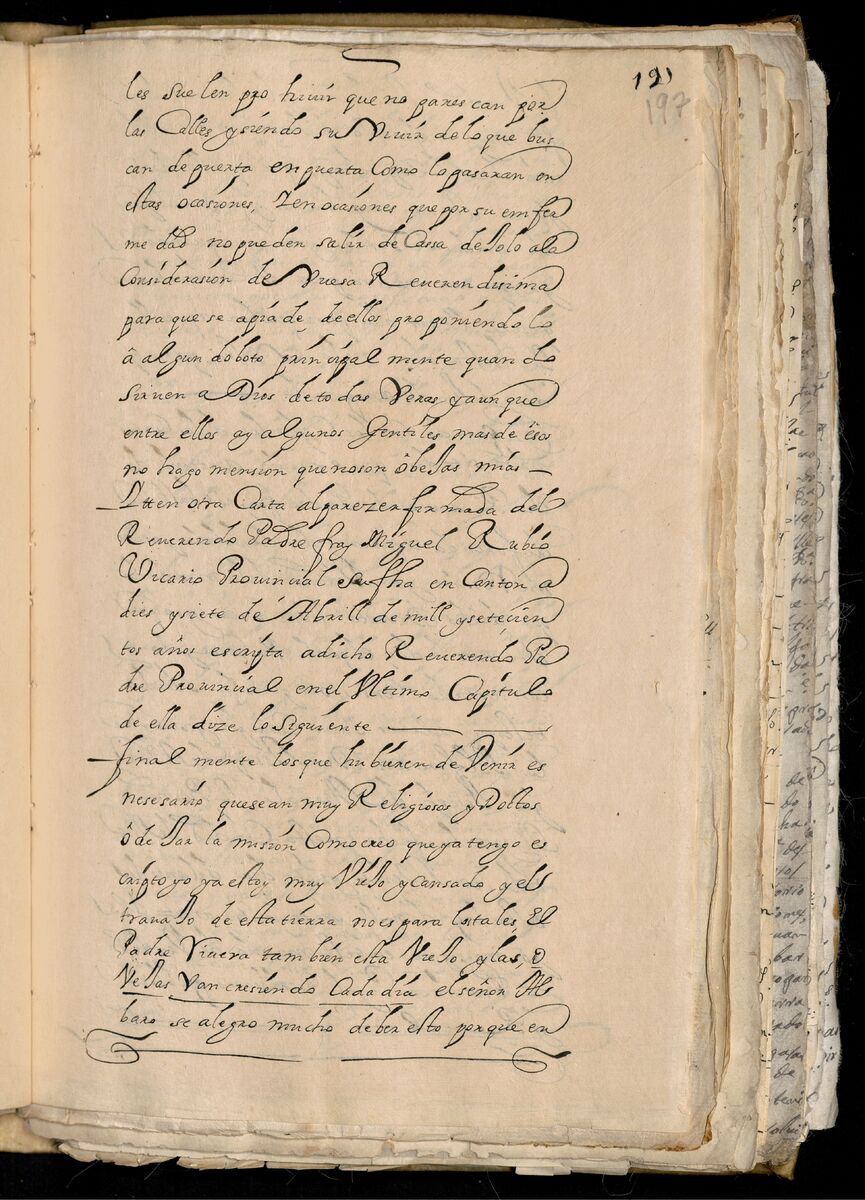 191
197
les suelen pro hivir que no parescan por
las Calles y siendo su Vivir de lo que bus
can de puerta en puerta Como lo pasaran en
estas ocasiones, Y en ocasiones que por su emfer
me dad no pueden salir de Cassa de Jolo a la
Considerasion de Vuesa Reverendisima
para que se apiade de ellos pro poniendolo
â algun doboto principal mente quando
sirven a Dios de todas Veras, y aun que
entre ellos ay algunos Gentiles mas de esos
no hago mension que no son ôbejas mias —
Itten otra Carta al parezer firmada del
Reverendo Padre fray Miguel Rubio
Vicario Provincial su fha en Canton a
dies y siete de Abrill de mill y setecien
tos años escripta a dicho Reverendo Pa
dre Provincial en el Ultimo Capitulo
de ella dize lo siguiente —
final mente los que hubieren de Venir es
nesesario que sean muy Religiosos y Doctos
ô dejar la mision Como creo que ya tengo es
cripto yo ya estoy muy Viejo y cansado, y el
travajo de esta tierra no es para los tales, El
Padre Vivera tambien esta Viejo y las, o
Vejas Van cresiendo Cada dia el señor Al
baro se alegro mucho de ber esto porque en